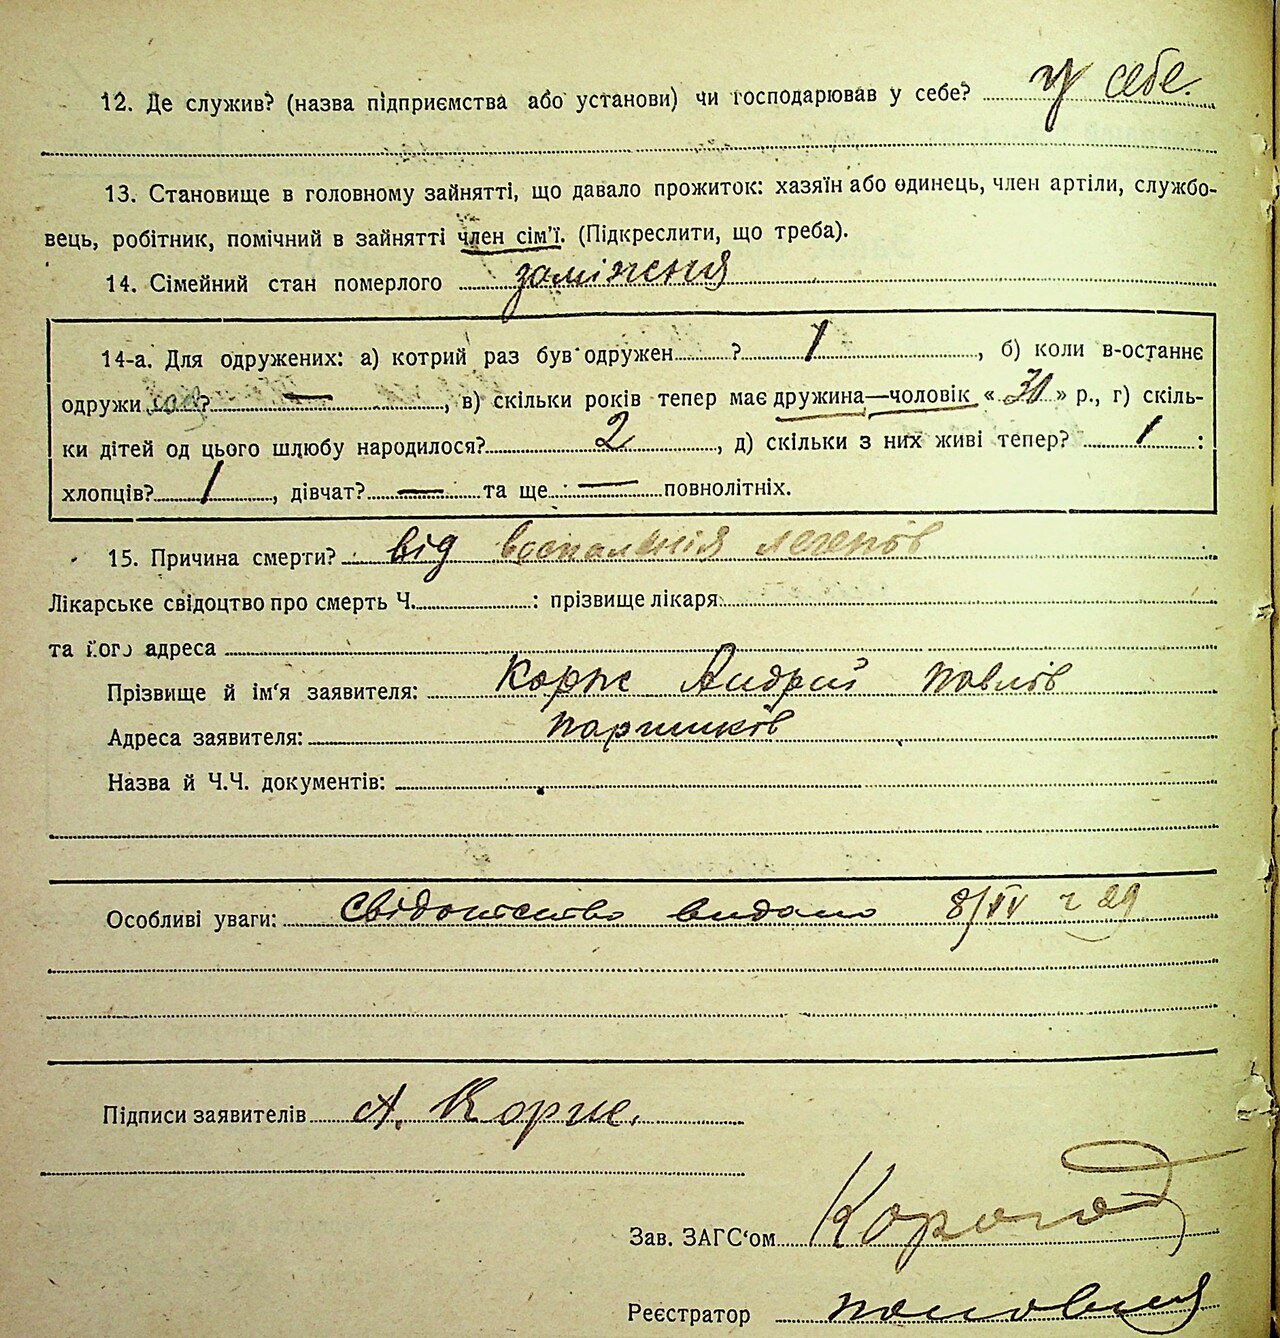 12. Де служив? (назва підприємства або установи) чи господарював у себе? у себе.
13. Становище в головному зайнятті, що давало прожиток: хазяїн або одинець, член артіли, службо-
вець, робітник, помічний в зайнятті член сім'ї. (Підкреслити, що треба).
14. Сімейний стан померлого заміжня
14-а. Для одружених: а) котрий раз був одружен ? 1, б) коли в-останнє
одружи ? —, в) скільки років тепер має дружина—чоловік « 30 » р., г) скіль-
ки дітей од цього шлюбу народилося? 2, д) скільки з них живі тепер? 1 :
хлопців? 1, дівчат? — та ще — повнолітніх.
15. Причина смерти? від воспаленія легенів
Лікарське свідоцтво про смерть Ч. : прізвище лікаря
та його адреса
Прізвище й ім'я заявителя: Корж Андрій Павлів
Адреса заявителя:
Назва й Ч.Ч. документів:
Особливі уваги: видано 8/IV 29
Підписи заявителів А. Корж.
Зав. ЗАГС'ом
Реєстратор